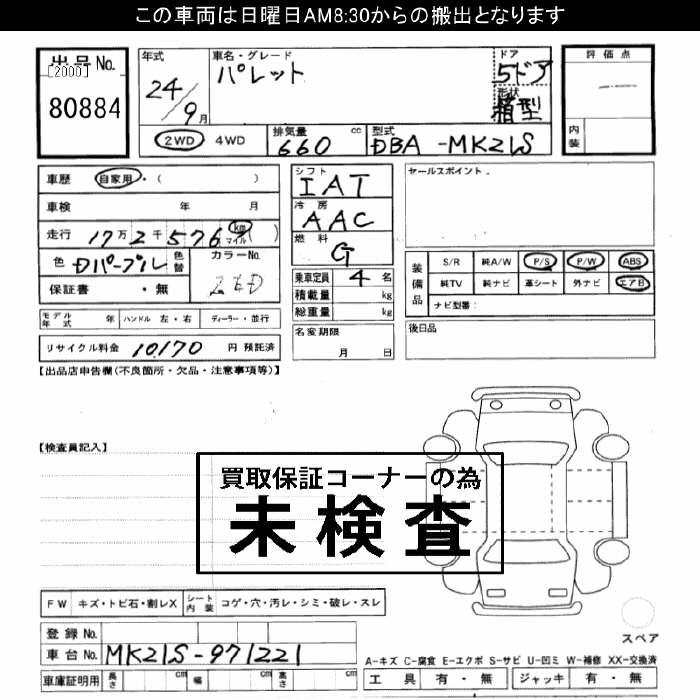 この車両は日曜日AM8:30からの搬出となります
出品No.
[2000]
80884
年式
24/9月
車名・グレード
パレット
ドア
5ドア
形状
箱型
評価点
内装
2WD 4WD
排気量 660 cc
型式 DBA-MK21S
車歴 自家用・( )
車検 年 月
走行 17万2千576 km マイル
色 Dパープル 色替
カラーNo. ZED
保証書 ・無
モデル年式 年 ハンドル 左・右 ディーラー・並行
リサイクル料金 10170 円 預託済
シフト
IAT
冷房
AAC
燃料
G
乗車定員 4 名
積載量 kg
総重量 kg
名変期限
月 日
セールスポイント
装備品
S/R 純A/W P/S P/W ABS
純TV 純ナビ 革シート 外ナビ エアB
ナビ型番:
後日品
【出品店申告欄(不良箇所・欠品・注意事項等)】
【検査員記入】
買取保証コーナーの為
未検査
FW キズ・トビ石・割レX シート内装 コゲ・穴・汚レ・シミ・破レ・スレ
登録No.
車台No. MK21S-971221
車庫証明用 長さ cm 幅 cm 高さ cm
スペア
A-キズ C-腐食 E-エクボ S-サビ U-凹ミ W-補修 XX-交換済
工具 有・無 ジャッキ 有・無